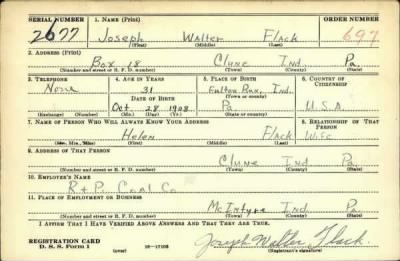 SERIAL NUMBER 1. NAME (Print) ORDER NUMBER
2677 Joseph Walter Flack 697
(First) (Middle) (Last)
2. ADDRESS (Print)
Box 18 Clune Ind. Pa.
(Number and street or R. F. D. number) (Town) (County) (State)
3. TELEPHONE 4. AGE IN YEARS 5. PLACE OF BIRTH 6. COUNTRY OF CITIZENSHIP
None 31 Fulton Run, Ind.
(Town or county)
DATE OF BIRTH
Oct 28 1908 Pa. U.S.A.
(Exchange) (Number) (Mo.) (Day) (Yr.) (State or country)
7. NAME OF PERSON WHO WILL ALWAYS KNOW YOUR ADDRESS 8. RELATIONSHIP OF THAT PERSON
Helen Flack Wife
(Mr., Mrs., Miss) (First) (Middle) (Last)
9. ADDRESS OF THAT PERSON
Clune Ind Pa.
(Number and street or R. F. D. number) (Town) (County) (State)
10. EMPLOYER'S NAME
R + P. Coal Co.
11. PLACE OF EMPLOYMENT OR BUSINESS
McIntyre Ind. Pa.
(Number and street or R. F. D. number) (Town) (County) (State)
I AFFIRM THAT I HAVE VERIFIED ABOVE ANSWERS AND THAT THEY ARE TRUE.
REGISTRATION CARD
D. S. S. Form 1 (over) 16-17105 Joseph Walter Flack.
(Registrant's signature)